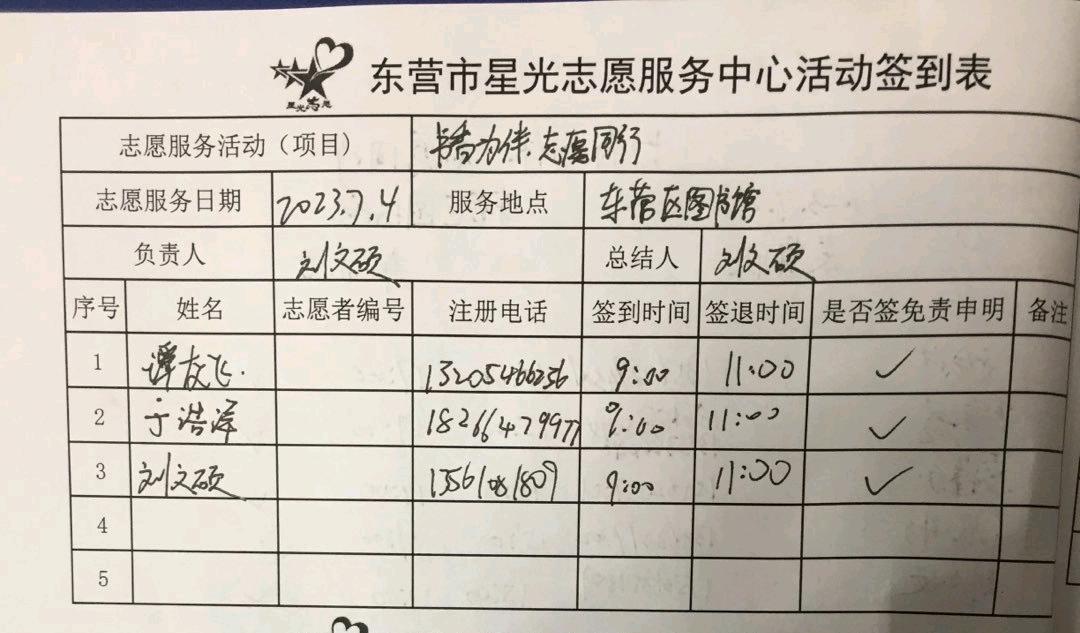 星光志愿
东营市星光志愿服务中心活动签到表
志愿服务活动（项目） 书香为伴.志愿同行
志愿服务日期 2023.7.4 服务地点 东营区图书馆
负责人 刘文硕 总结人 刘文硕
序号 姓名 志愿者编号 注册电话 签到时间 签退时间 是否签免责申明 备注
1 谭友飞. 13205466256 9:00 11:00 ✓
2 于浩泽 18266479977 9:00 11:00 ✓
3 刘文硕 13561081809 9:00 11:00 ✓
4
5